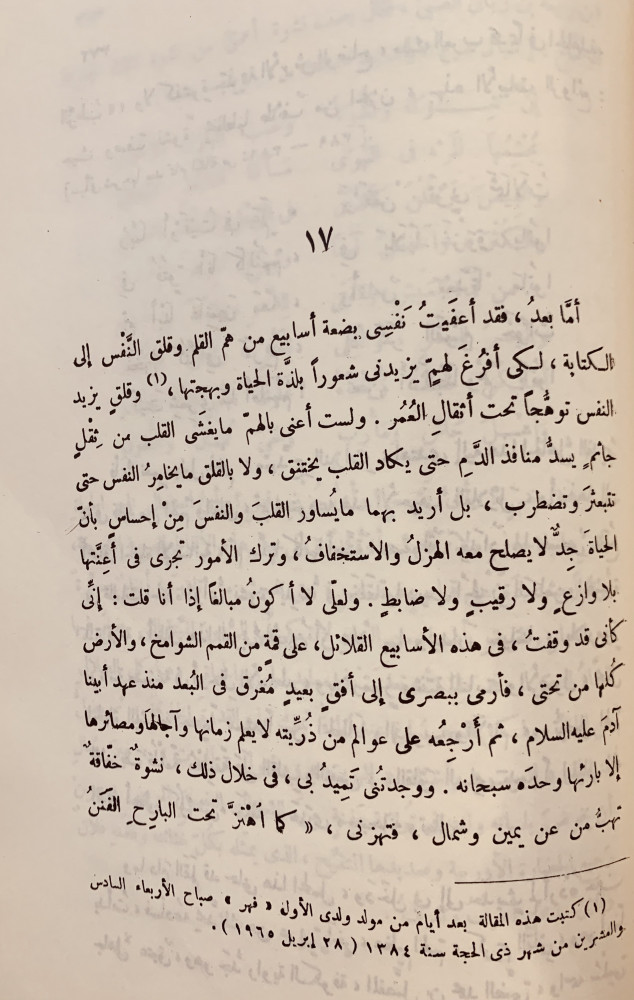 ١٧
أمَّا بعدُ ، فقد أعفَيتُ نَفْسِى بضعة أسابيع من همّ القلم وقلق النَّفْس إلى
الكتابة ، لكى أفرُغَ لهمٍّ يزيدنى شعوراً بلذَّة الحياة وبهجتها ،(١) وقلقٍ يزيد
النفس توهُّجاً تحت أثقالِ العُمُر . ولست أعنى بالهمّ مايغشَى القلب من ثِقْلٍ
جاثمٍ يسدُّ منافذ الدَّمِ حتى يكاد القلب يختنق ، ولا بالقلق مايخامِرُ النفس حتى
تتبعثرَ وتضطرب ، بل أريد بهما مايُساور القلبَ والنفسَ مِنْ إحساسٍ بأنّ
الحياةَ جِدٌّ لايصلح معه الهزلُ والاستخفافُ ، وترك الأمور تجرى فى أعِنَّتها
بلا وازعٍ ولا رقيبٍ ولا ضابطٍ . ولعلّى لا أكونُ مبالغاً إذا أنا قلت : إنِّى
كأنى قد وقفتُ ، فى هذه الأسابيع القلائل، على قمةٍ من القمم الشوامخ ، والأرض
كُلها من تحتى ، فأرمى ببصرى إلى أفقٍ بعيدٍ مُغْرق فى البُعد منذ عهد أبينا
آدمَ عليه السلام ، ثم أَرْجِعُه على عوالم من ذُرِّيته لايعلم زمانها وآجالهَا ومصائرها
إلا بارئها وحدَه سبحانه . ووجدتُنى تَمِيدُ بى ، فى خلال ذلك ، نشوةٌ خفّاقةٌ
تهبُّ من عن يمين وشمال ، فتهزنى ، « كما اهْتزَّ تحت البارِحِ الفَنَنُ
(١) كتبت هذه المقالة بعد أيام من مولد ولدى الأول « فهر » صباح الأربعاء السادس
والعشرين من شهر ذى الحجة سنة ١٣٨٤ ( ٢٨ إبريل ١٩٦٥ ) .